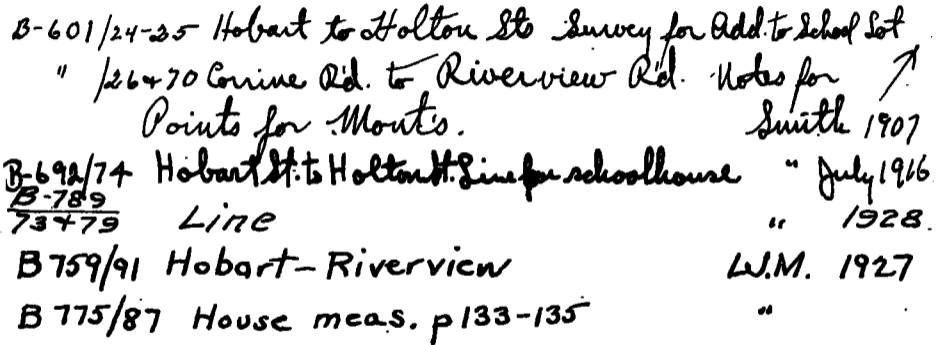 B-601/24-25 Hobart to Holton Sts Survey for Add. to School Lot
" /26+70 Corrine Rd. to Riverview Rd. Notes for
Points for Mont's. Smith 1907
B-692/74 Hobart St. to Holton St. Line for schoolhouse " July 1916
B-789
73+79 Line " 1928.
B 759/91 Hobart-Riverview W.M. 1927
B 775/87 House meas. p 133-135 "